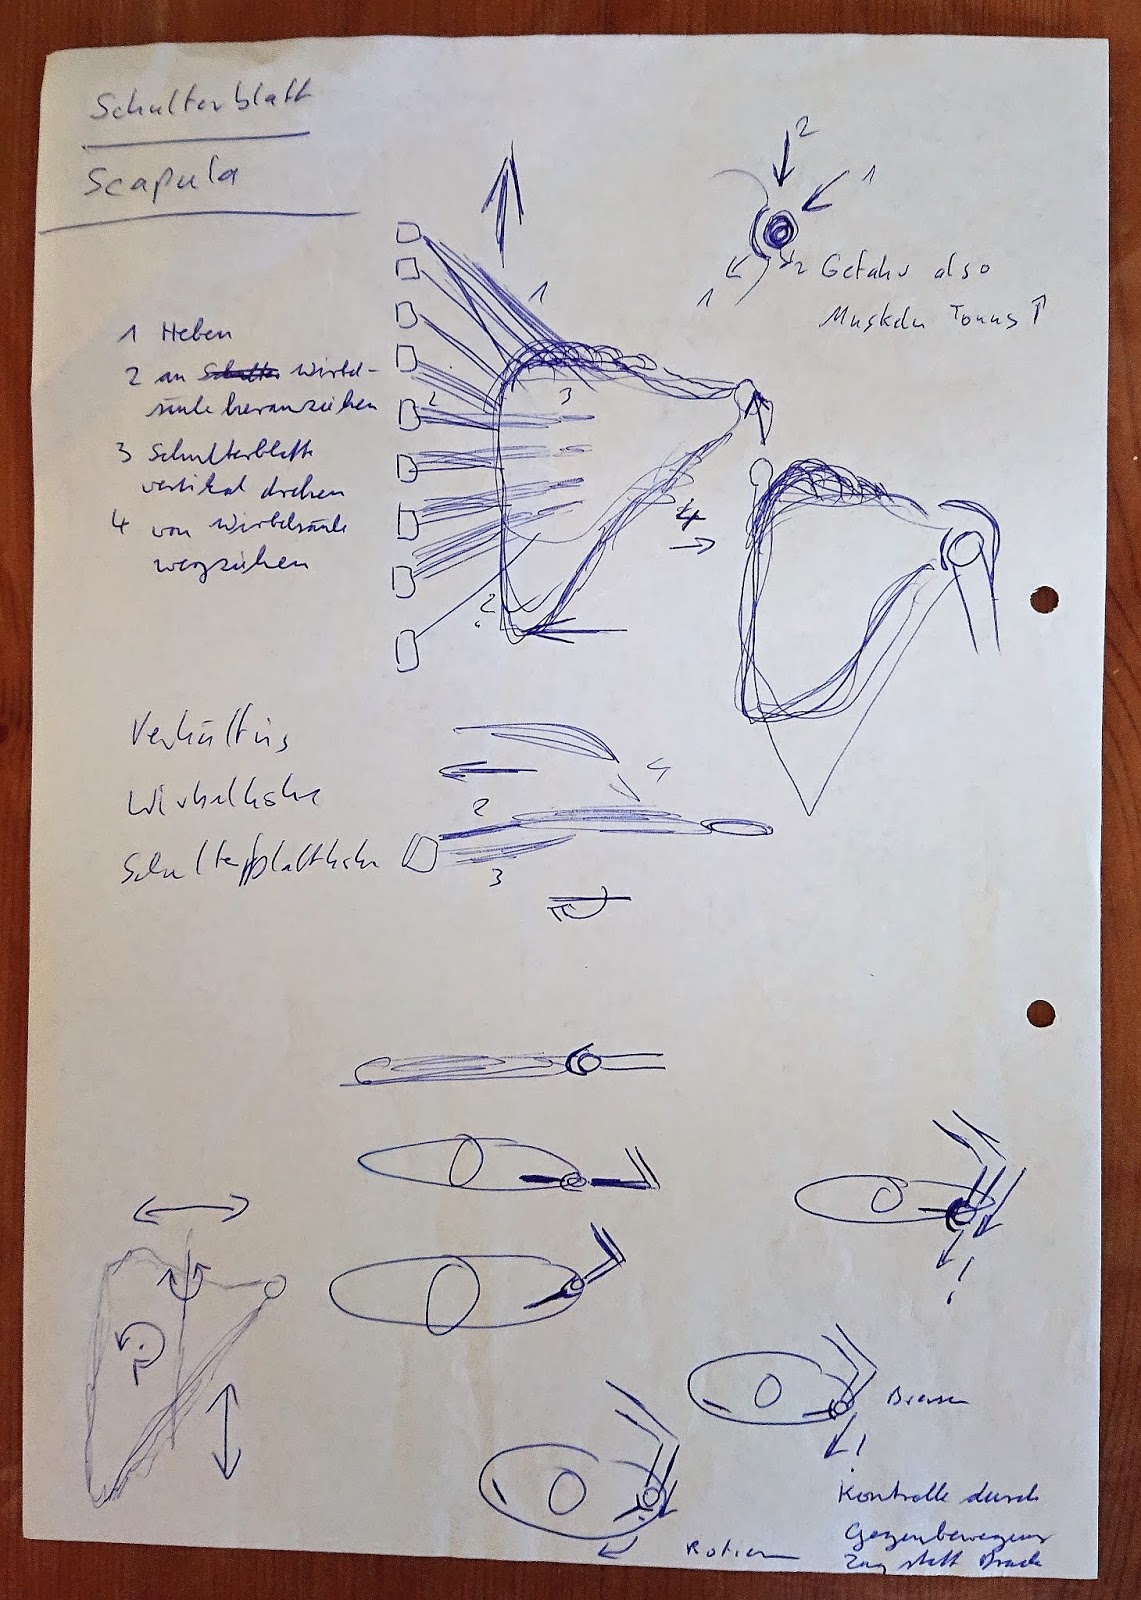 Schulterblatt
Scapula
2
1
1
2 Gefahr also
Muskeln Tonus ↑
1
1 Heben
2 an Schulter Wirbel-
säule heranziehen
2
3
3 Schulterblatt
vertikal drehen
4 von Wirbelsäule
wegziehen
4
2
Verhältnis
4
2
3
Bremsen
!
!
Rotieren
Kontrolle durch
Gegenbewegung
Zug statt Druck